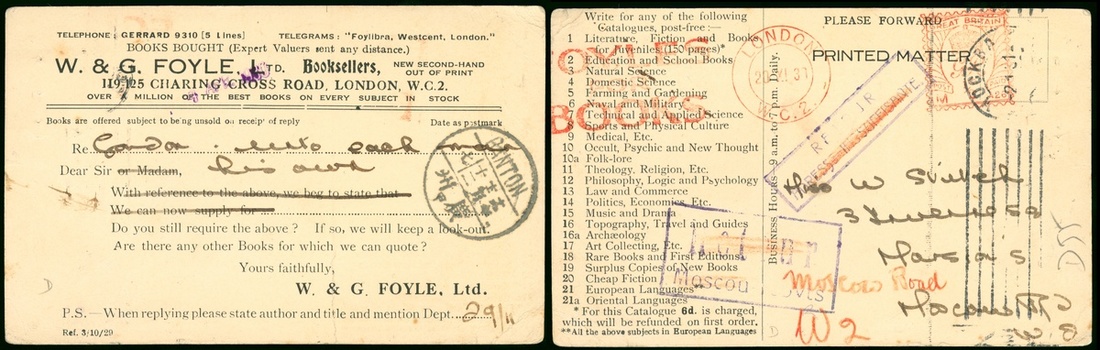 TELEPHONE: GERRARD 9310 [5 Lines] TELEGRAMS: "Foylibra, Westcent, London."
BOOKS BOUGHT (Expert Valuers sent any distance.)
W. & G. FOYLE, LTD. Booksellers, NEW SECOND-HAND OUT OF PRINT
119/125 CHARING CROSS ROAD, LONDON, W.C.2.
OVER MILLION OF THE BEST BOOKS ON EVERY SUBJECT IN STOCK
Books are offered subject to being unsold on receipt of reply Date as postmark
Re each man
Dear Sir or Madam, his own
With reference to the above, we beg to state that
We can now supply for
CANTON
Do you still require the above? If so, we will keep a look-out.
Are there any other Books for which we can quote?
Yours faithfully,
W. & G. FOYLE, Ltd.
P.S.—When replying please state author and title and mention Dept. 29/11
Ref. 3/10/29
Write for any of the following
Catalogues, post-free:—
1 Literature, Fiction and Books
for Juveniles (150 pages)*
2 Education and School Books
3 Natural Science
4 Domestic Science
5 Farming and Gardening
6 Naval and Military
7 Technical and Applied Science
8 Sports and Physical Culture
9 Medical, Etc.
10 Occult, Psychic and New Thought
10a Folk-lore
11 Theology, Religion, Etc.
12 Philosophy, Logic and Psychology
13 Law and Commerce
14 Politics, Economics, Etc.
15 Music and Drama
16 Topography, Travel and Guides
16a Archæology
17 Art Collecting, Etc.
18 Rare Books and First Editions
19 Surplus Copies of New Books
20 Cheap Fiction
21 European Languages**
21a Oriental Languages
*For this Catalogue 6d. is charged,
which will be refunded on first order.
**All the above subjects in European Languages
Business Hours: 9 a.m. to 7 p.m. Daily.
BOOKS
LONDON
W.C.2.
PLEASE FORWARD
PRINTED MATTER
МОСКВА
Miss W
Moscow Road
W2
Moscow Rd
W 2